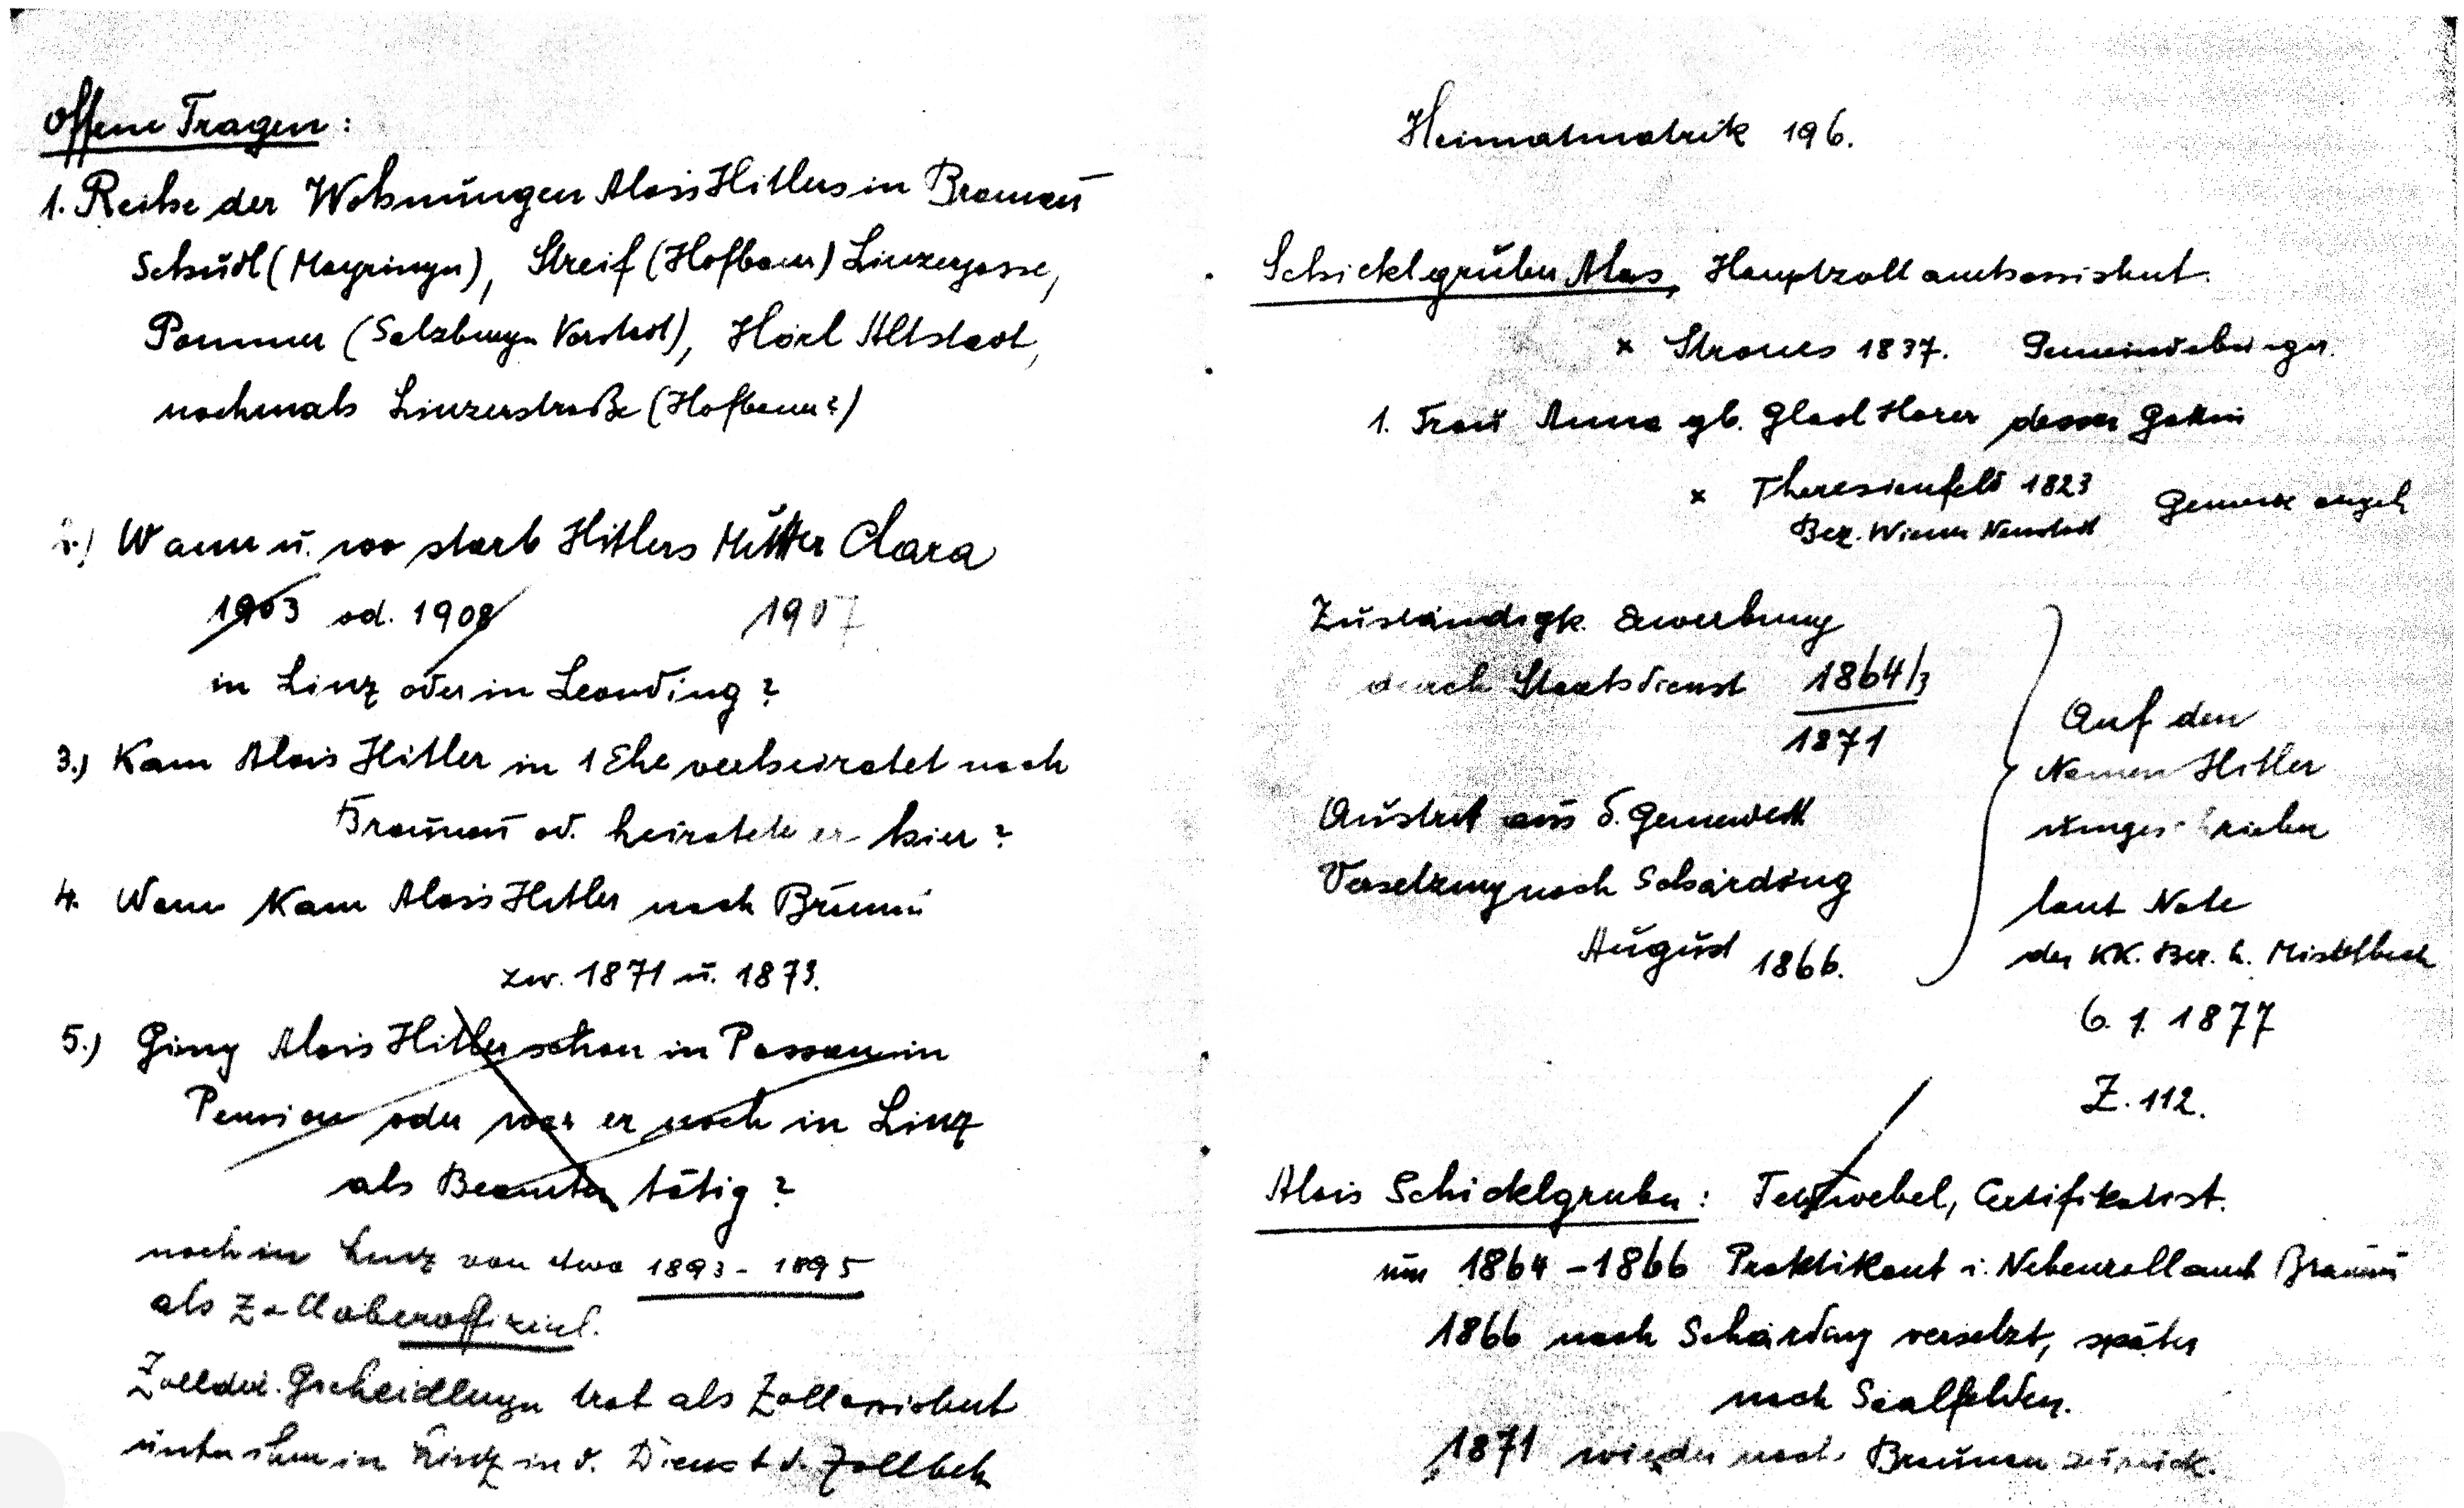 Offene Fragen:
1. Reihe der Wohnungen Alois Hitlers in Braunau
Schüdl (Mayringer), Streif (Hofbauer) Linzergasse,
Pommer (Salzburger Vorstadt), Hörl Altstadt,
nochmals Linzerstraße (Hofbauer?)
2.) Wann u. wo starb Hitlers Mutter Clara
1903 od. 1908 1907
in Linz oder in Leonding?
3.) Kam Alois Hitler in 1 Ehe verheiratet nach
Braunau od. heiratete er hier?
4. Wann kam Alois Hitler nach
zw. 1871 u. 1873.
5.) Ging Alois Hitler schon in Passau in
Pension oder war er noch in Linz
als Beamter tätig?
noch in Linz von etwa 1893 - 1895
als Zolloberoffizial.
Zolldir. trat als Zollassistent
unter ihm in Linz in d. Dienst d.
Heimatmatrik 196.
Schicklgruber Alois, Hauptzollamtsassistent.
x Strones 1837.
1. Frau Anna gb. Glasl Hörer dessen Gattin
x Theresienfeld 1823
Bez. Wiener Neustadt
Zuständigk. Erwerbung
durch Staatsdienst 1864/3
1871
Austritt aus d.
Versetzung nach Schärding
August 1866.
Auf den
Namen Hitler
umgeschrieben
laut Note
der KK. Bez. h. Mistelbach
6. 1. 1877
Z. 112.
Alois Schicklgruber: Feldwebel, Certifikatist.
um 1864 - 1866 Praktikant i. Nebenzollamt Braunau
1866 nach Schärding versetzt, später
nach Saalfelden.
1871 wieder nach Braunau zurück.